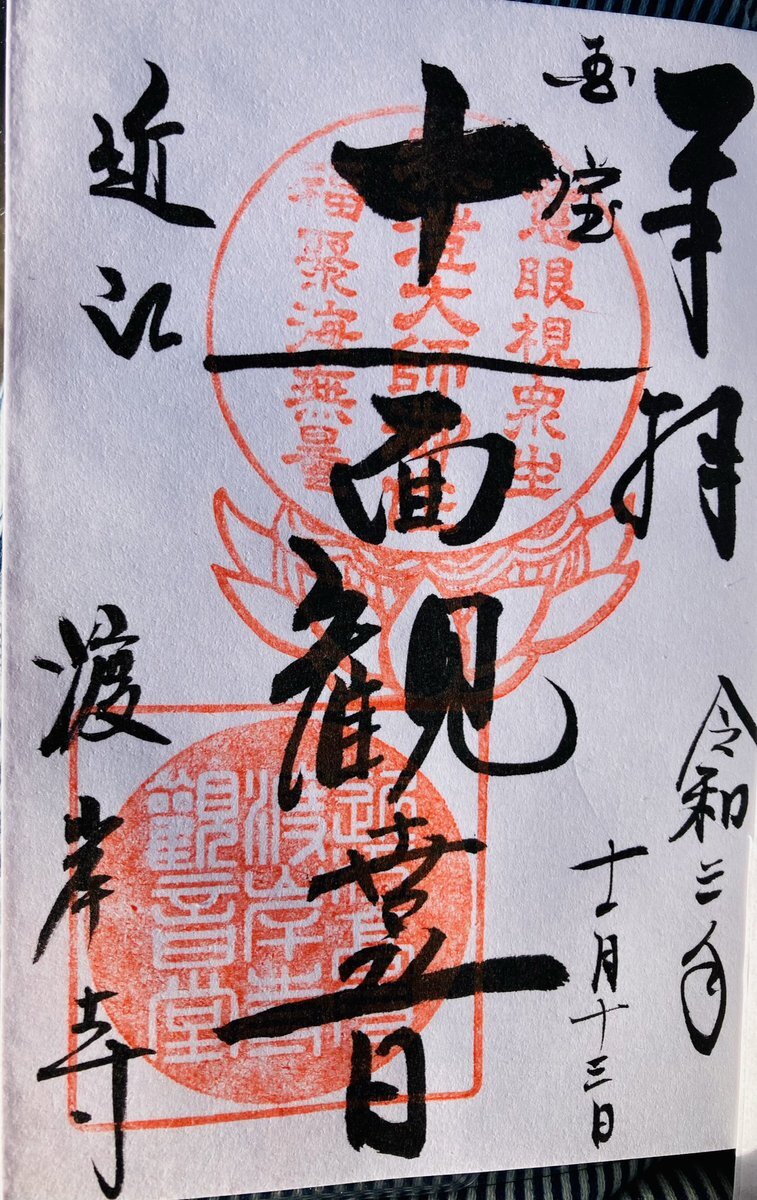 奉拝
令和三年
十一月十三日
国宝
十一面観世音
近江
渡岸寺
慈眼視衆生
大師
福聚海無量
渡岸寺
觀音堂